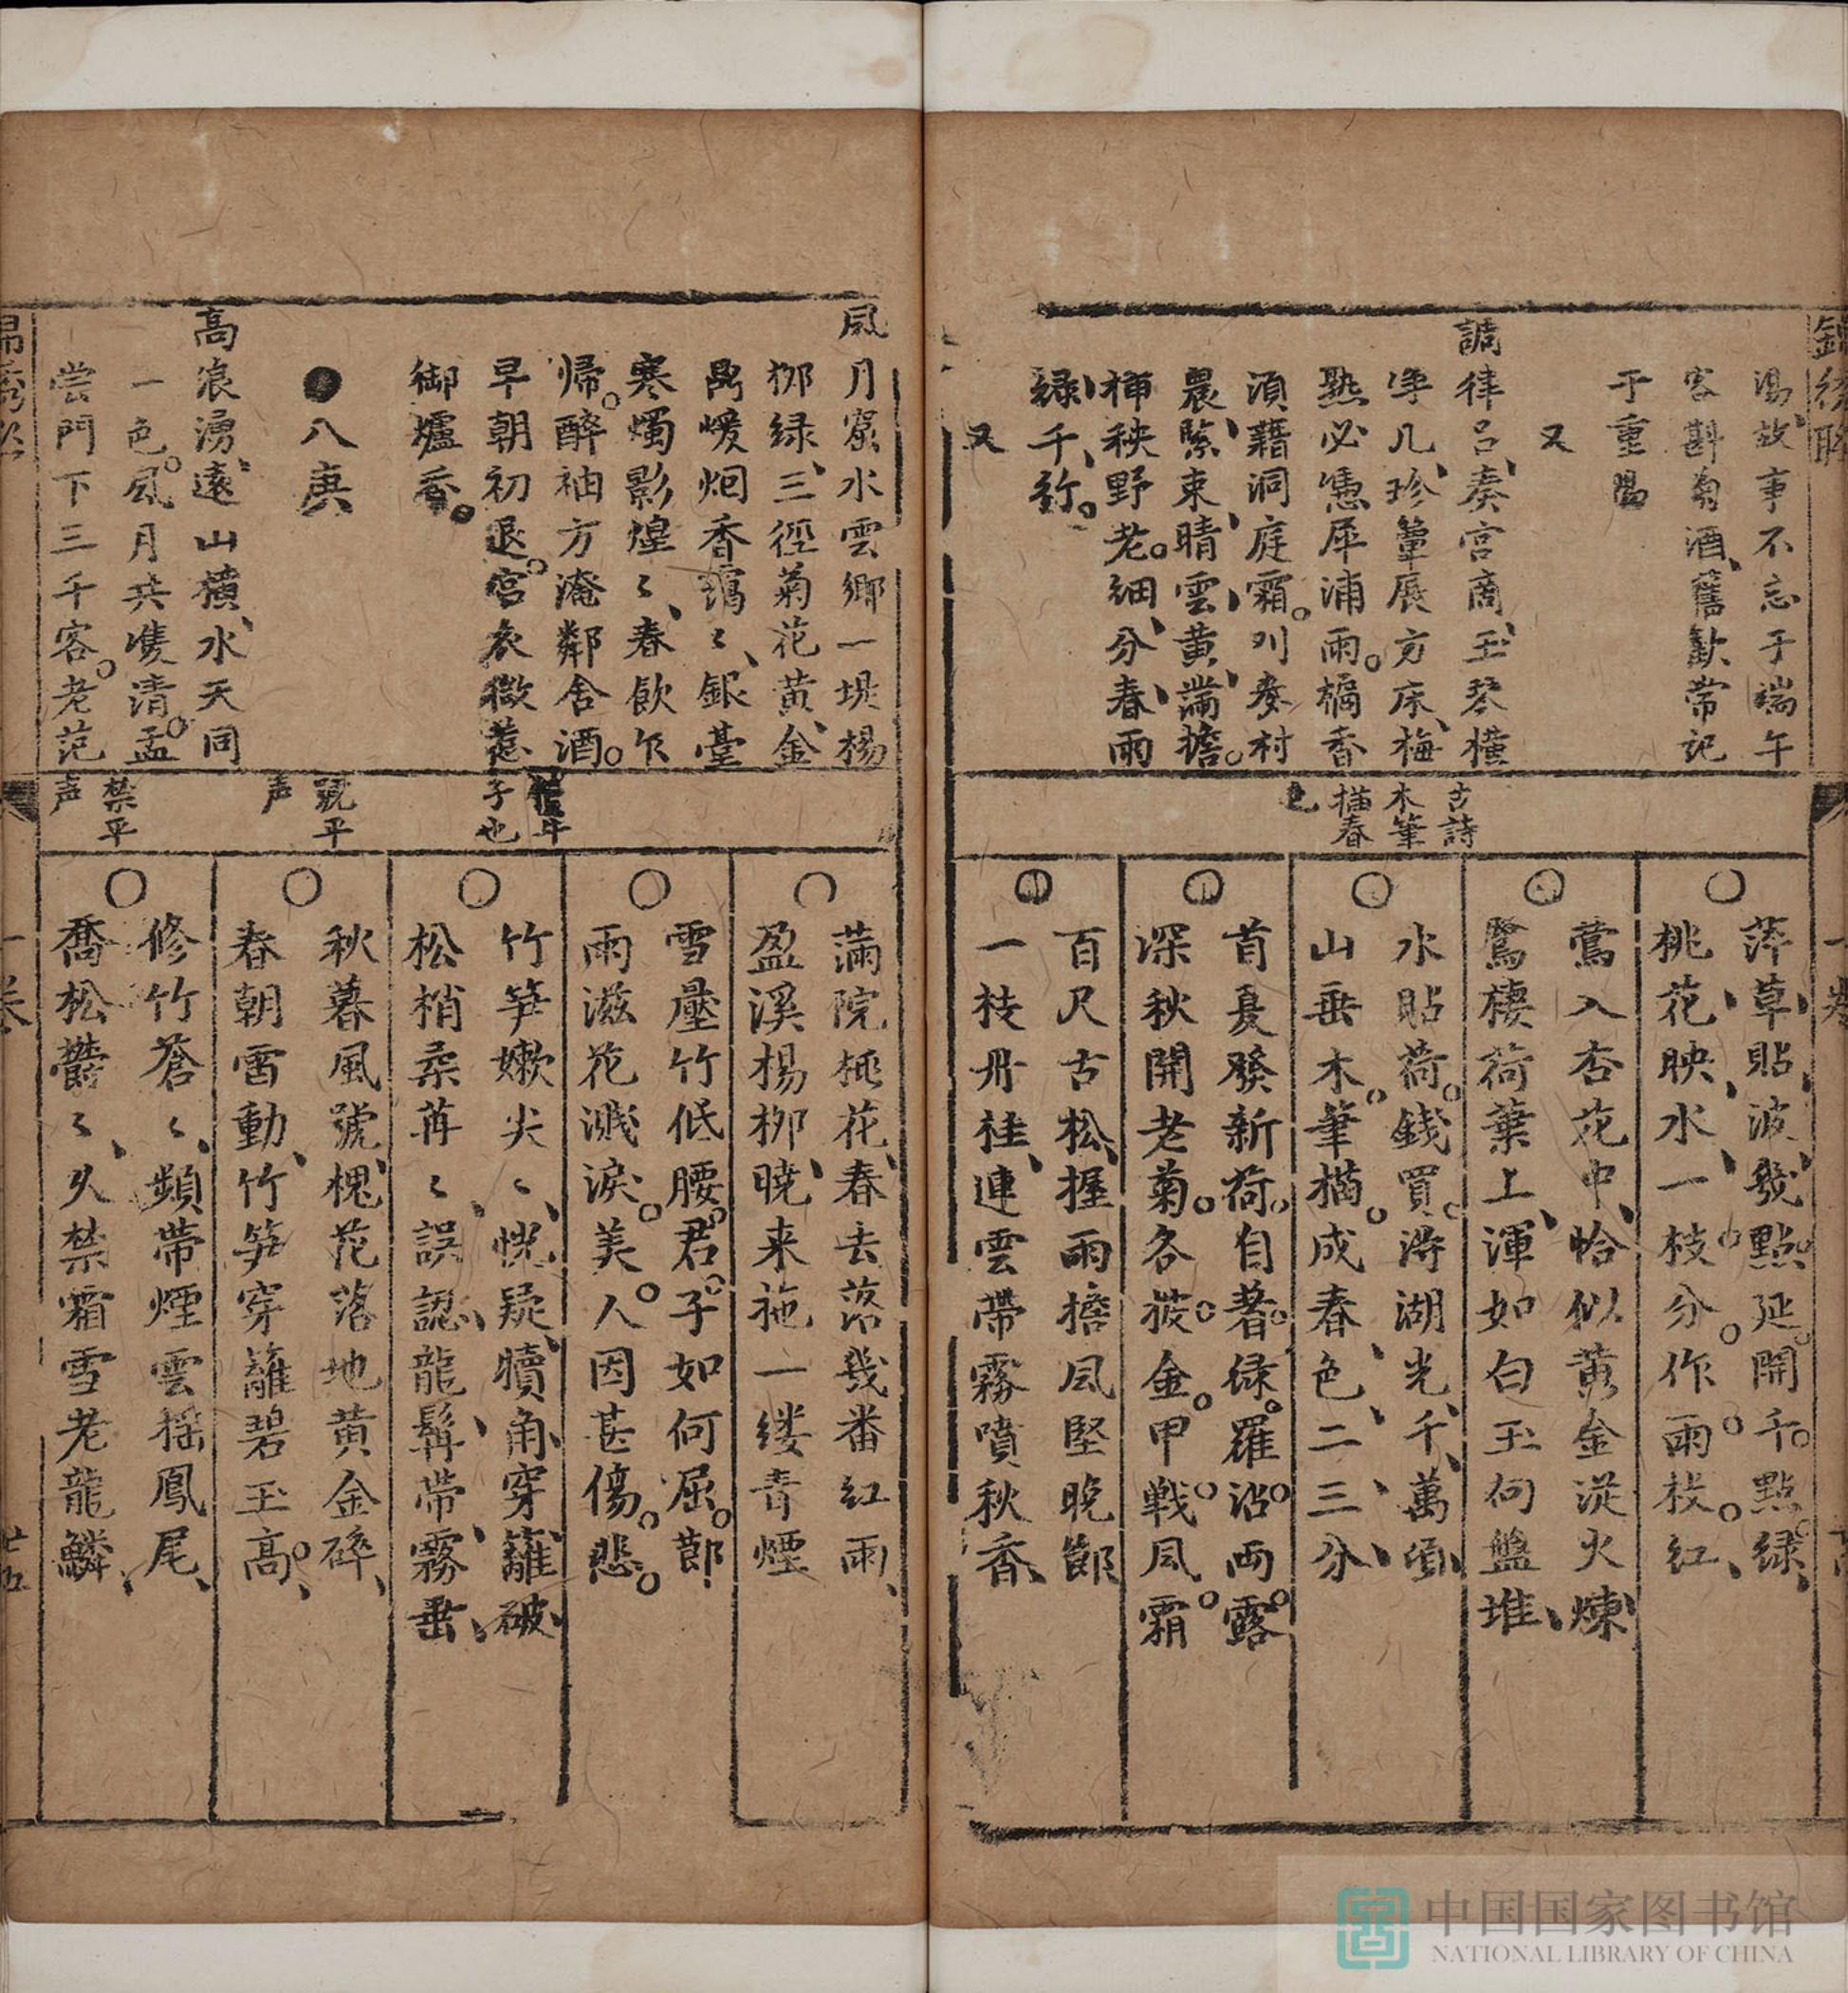 湯故事不忘于端午
客斟菊酒舊歡常記
于重陽
又
調律呂奏宮商玉琴橫
几珍簟展方床梅
熟必憑犀浦雨橘香
須藉洞庭霜刈麥村
晨緊束晴雲黄滿擔
挿秧野老細分春雨
緑千行
又
古詩
木筆
描春
色
萍草貼波幾點延開千點緑
桃花映水一枝分作兩枝紅
鶯入杏花中恰似黄金從火煉
鷺棲荷葉上渾如白玉向盤堆
水貼荷錢買得湖光千萬頃
山垂木筆描成春色二三分
首夏發新荷自著緑羅沾雨露
深秋開老菊各披金甲戰風霜
百尺古松擢雨擔風堅晚節
一枝丹桂連雲帶霧噴秋香
風月窟水雲鄉一堤楊
柳緑三徑菊花黄金
爇煖炯香靄〻銀臺
寒燭影煌〻春飲乍
帰醉袖方淹鄰舍酒
早朝初退宮衣微惹
御爐香
●八庚
高浪湧遠山橫水天同
一色風月共雙清孟
嘗門下三千客老范
犢牛
子也
號平
声
禁平
声
滿院桃花春去落幾番紅雨
盈溪楊柳曉来拖一縷青煙
雪壓竹低腰君子如何屈節
雨滋花濺淚美人因甚傷悲
竹笋嫩尖〻恍疑犢角穿籬破
松梢柔苒〻誤認龍髯帶霧垂
秋暮風號槐花落地黄金碎
春朝雷動竹笋穿籬碧玉高
修竹蒼〻頻帶煙雲揺鳳尾
喬松鬱〻久禁霜雪老龍鱗
中国国家图书馆
NATIONAL LIBRARY OF CHINA